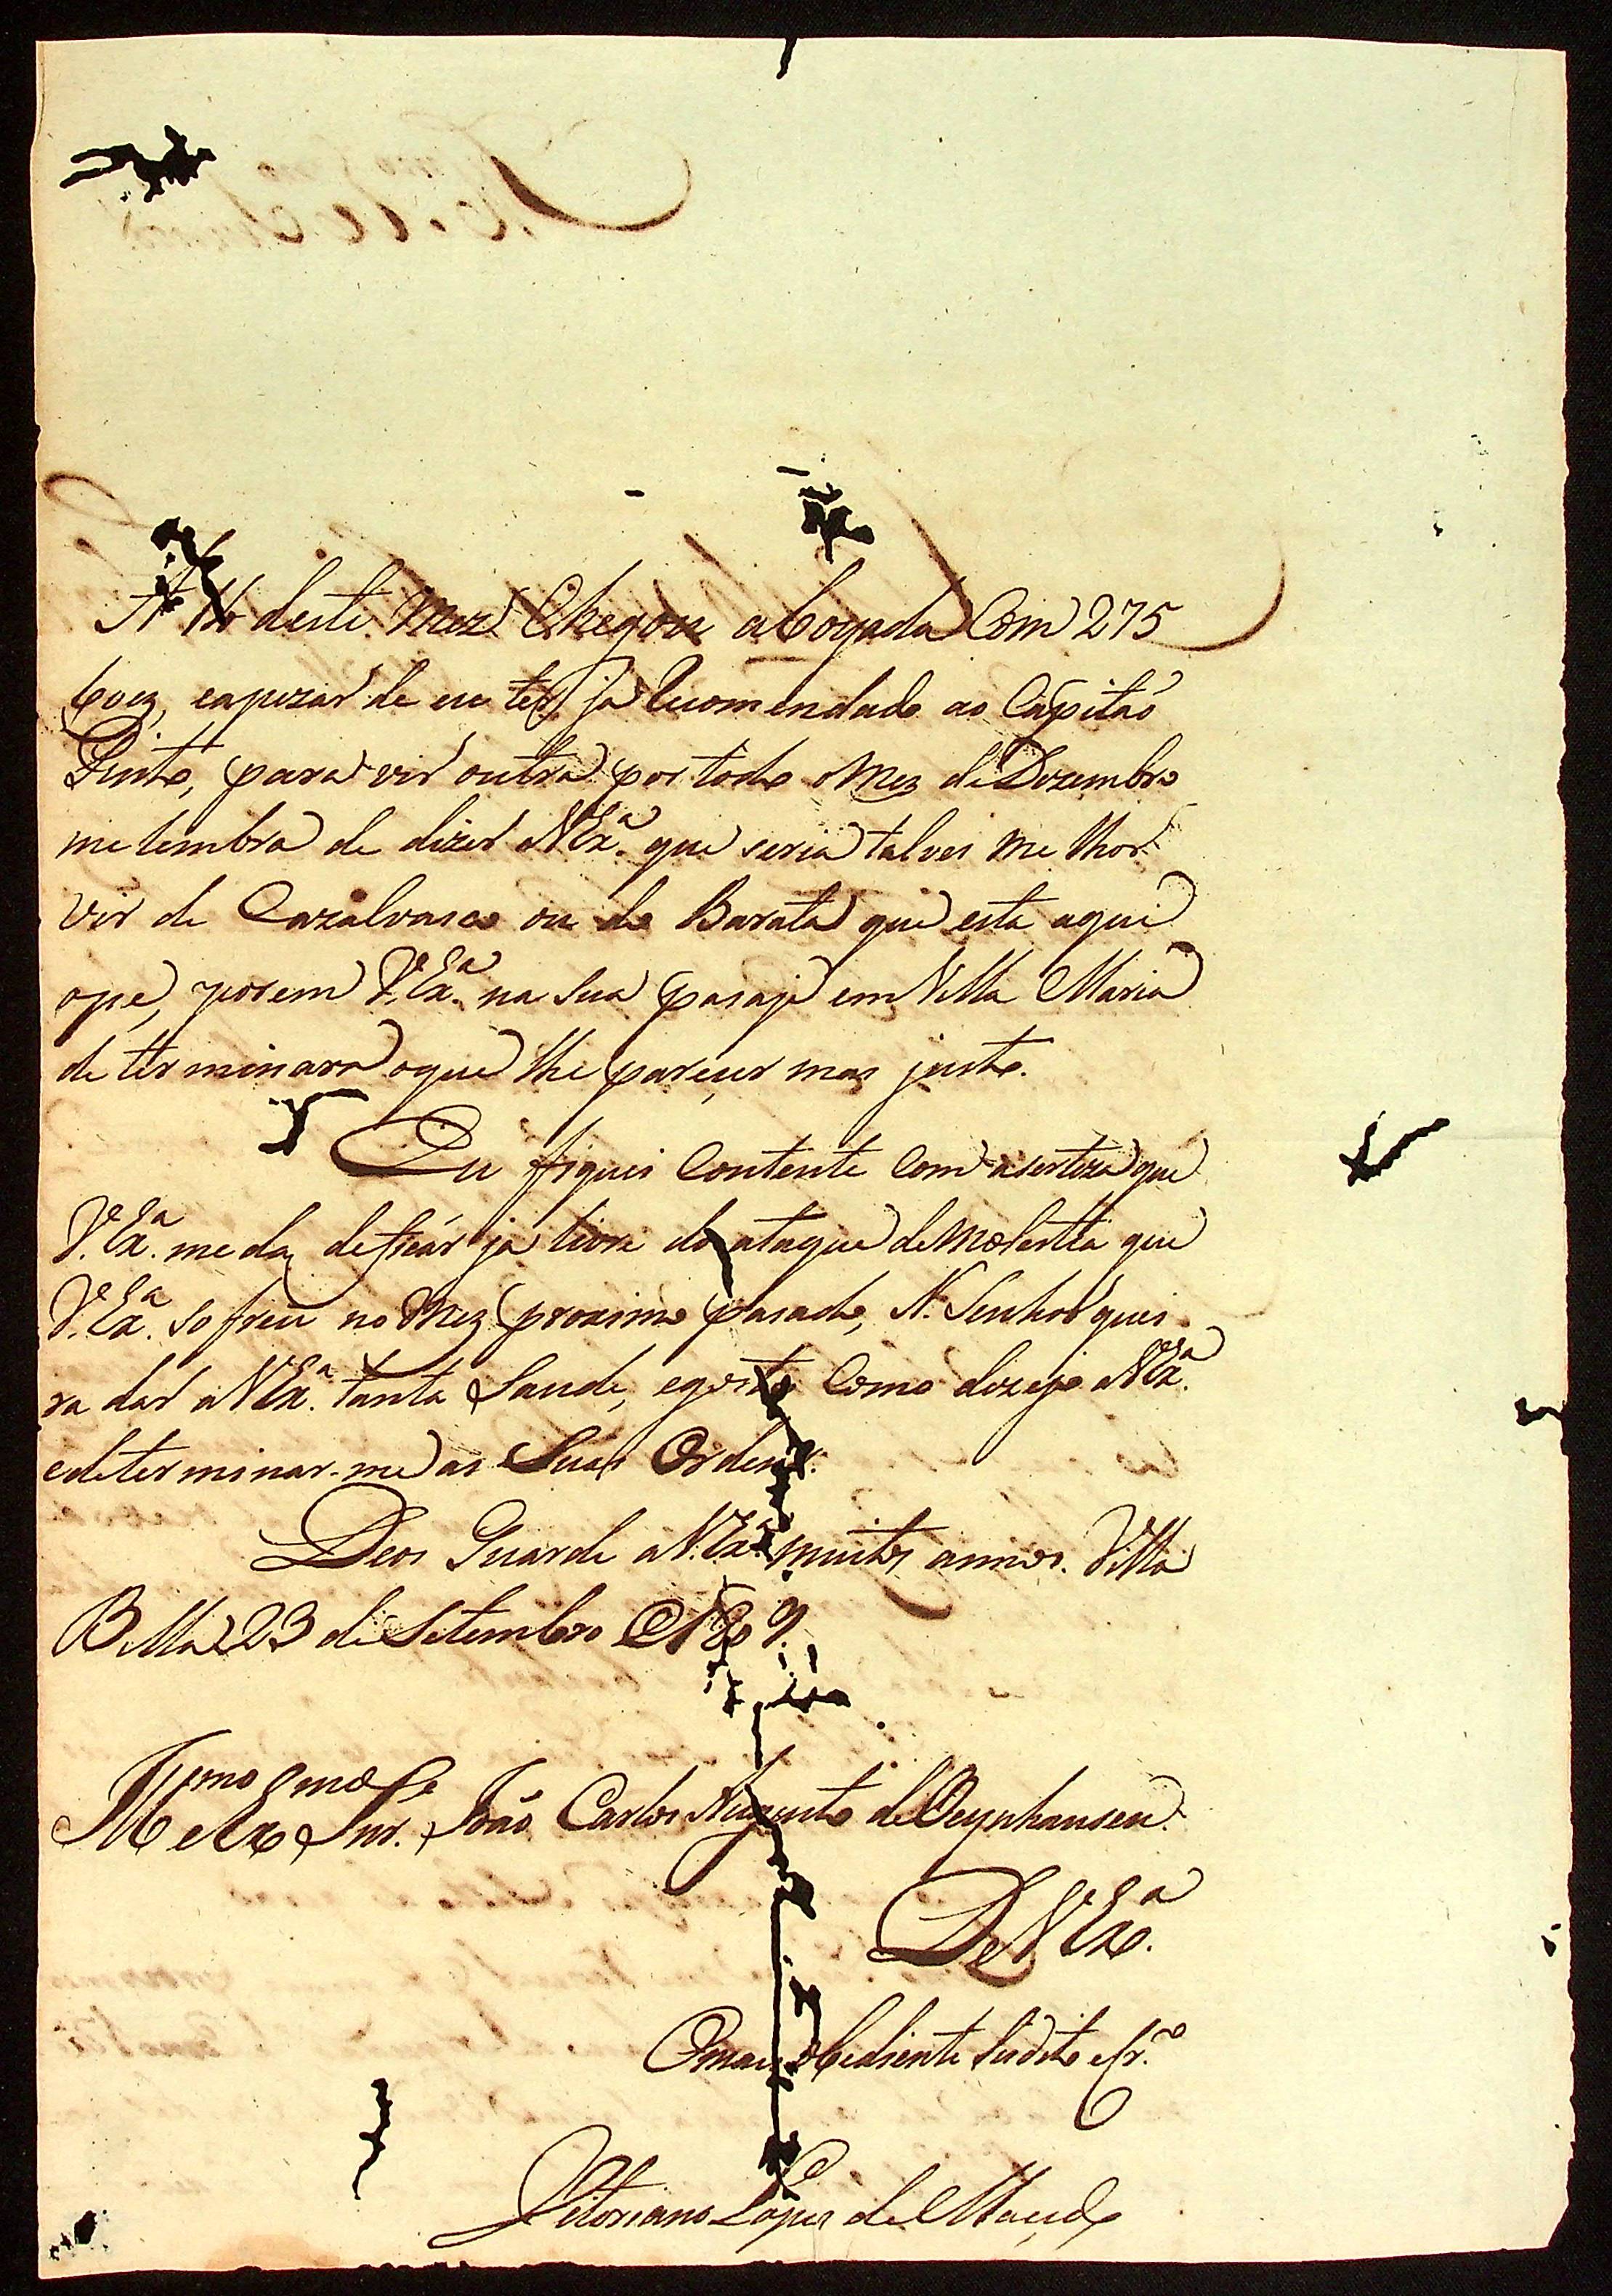 A 16 deste Mez Chegou aboyada Com 275
boez, eapezar de eu ter ja Recomendado ao Capitaó
Pinto, para vir outra por todo o Mez de Dezembro
me lembra de dizer a V.Exª. que seria talves me lhor
vir de Cazalvasco ou do Barata que esta aqui
ope, porem V.Exª. na Sua pasaje em Villa Maria
de ter minara oque lhe pareçer mas justo.
Eu fiquei Contente Com a certeza que
V.Exª. me da, deficár ja livre do ataque de molestia que
V.Exª. Sofreu no Mez proximo pasado, N. Senhor quei
ra dar a V.Exª. tanta Saude, egosto Como dezejo a V.Exª.
edeter minar-me as Suas Ordens.
Deos Guarde a V.Exª. muitos annos. Villa
Bella 23 de Setembro de 1809.
Illmo e Exmo Snr. Joaõ Carlos Augusto de Oeynhausen.
De V.Exª.
Omais obediente Sudito e Cr.º
Vitoriano Lopes de Macedo